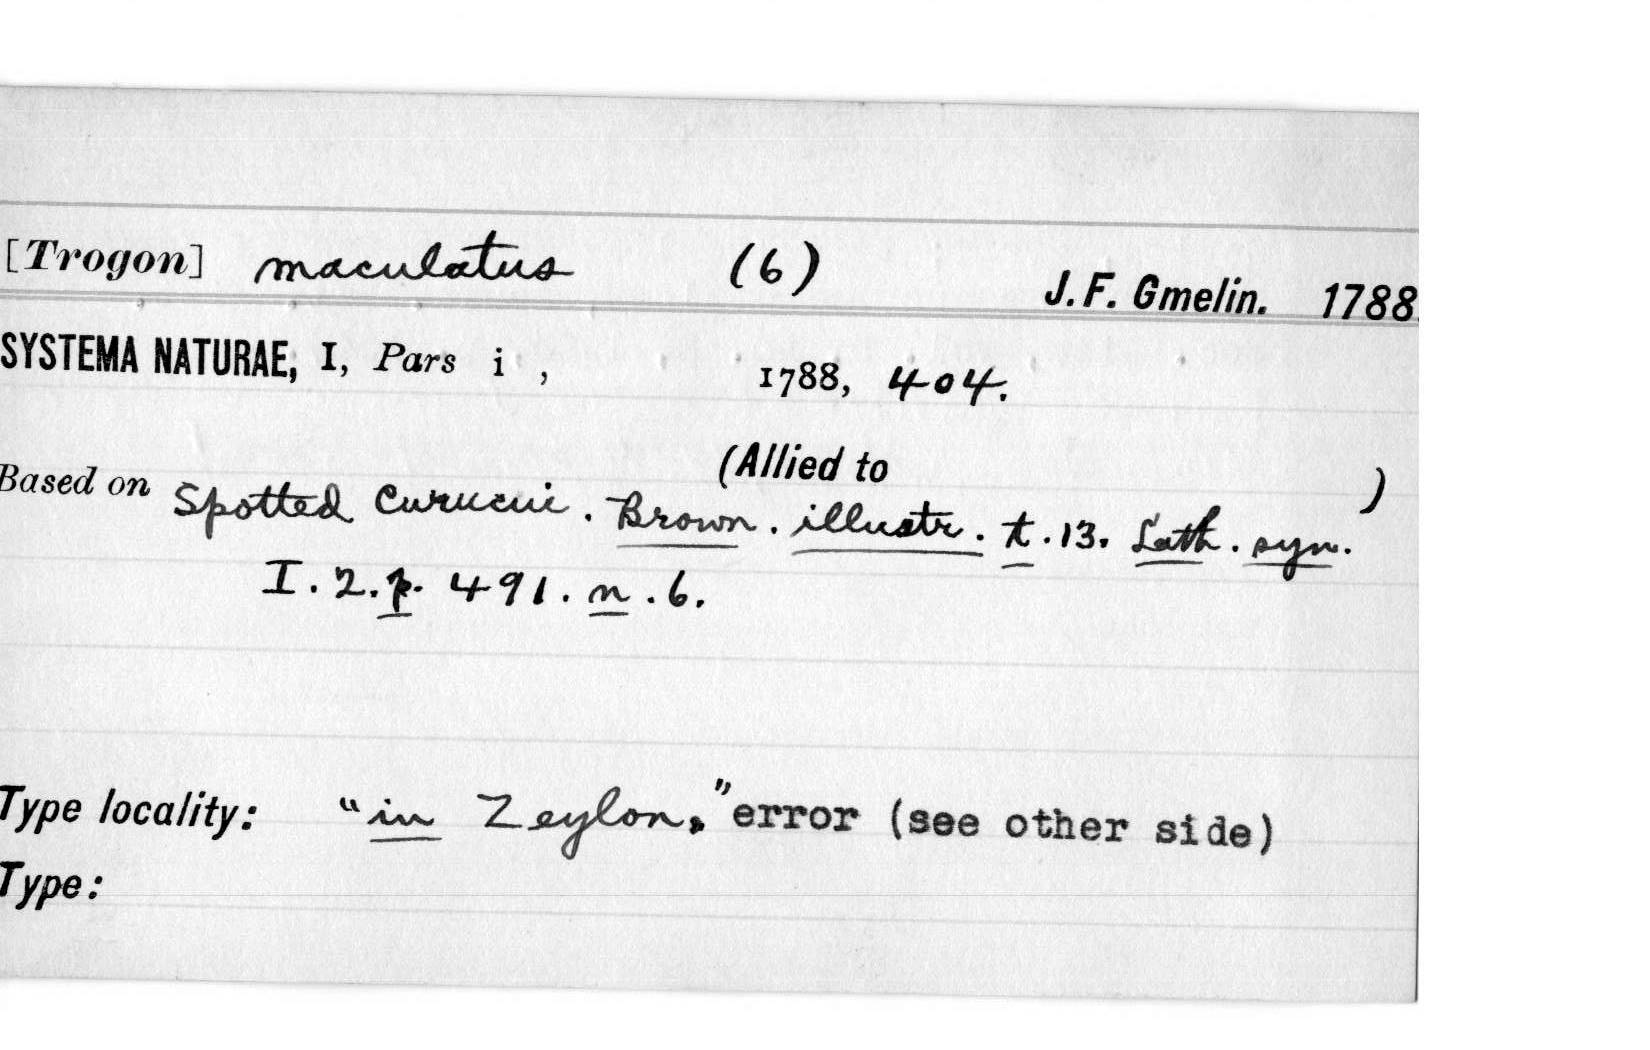 [Trogon] maculatus (6) J. F. Gmelin. 1788.
SYSTEMA NATURAE, I, Pars i , 1788, 404.
(Allied to )
Based on Spotted Curucui . Brown . illustr . t . 13. Lath . syn.
I . 2. p. 491 . n . 6.
Type locality: "in Zeylon," error (see other side)
Type: